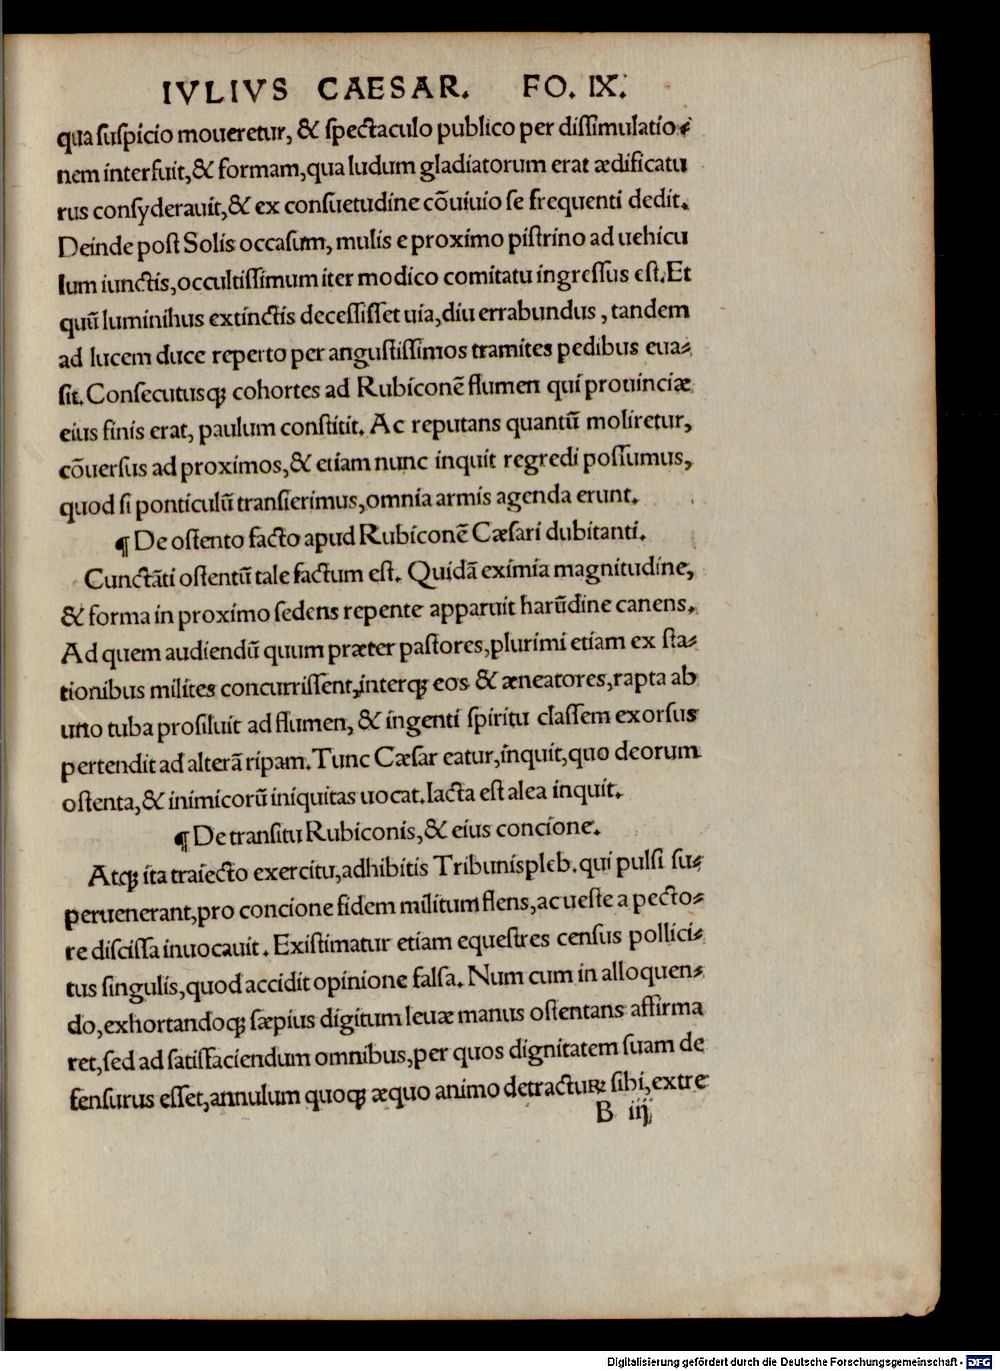 IVLIVS CAESAR. FO. IX.
qua suspicio moueretur, & spectaculo publico per dissimulatio⸗
nem interfuit,& formam,qua ludum gladiatorum erat ædificatu
rus consyderauit,& ex consuetudine cōuiuio se frequenti dedit.
Deinde post Solis occasum, mulis e proximo pistrino ad uehicu
lum iunctis,occultissimum iter modico comitatu ingressus est.Et
quū luminihus extinctis decessisset uia,diu errabundus , tandem
ad lucem duce reperto per angustissimos tramites pedibus eua⸗
sit.Consecutusq; cohortes ad Rubiconē flumen qui prouinciæ
eius finis erat, paulum constitit. Ac reputans quantū moliretur,
cōuersus ad proximos,& etiam nunc inquit regredi possumus,
quod si ponticulū transierimus,omnia armis agenda erunt.
¶ De ostento facto apud Rubiconē Cæsari dubitanti.
Cunctāti ostentū tale factum est. Quidā eximia magnitudine,
& forma in proximo sedens repente apparuit harūdine canens.
Ad quem audiendū quum præter pastores,plurimi etiam ex sta⸗
tionibus milites concurrissent,interq; eos & æneatores,rapta ab
uno tuba prosiluit ad flumen, & ingenti spiritu classem exorsus
pertendit ad alterā ripam.Tunc Cæsar eatur,inquit,quo deorum
ostenta,& inimicorū iniquitas uocat.Iacta est alea inquit.
¶ De transitu Rubiconis,& eius concione.
Atq; ita traiecto exercitu,adhibitis Tribunispleb.qui pulsi su⸗
peruenerant,pro concione fidem militum flens,ac ueste a pecto⸗
re discissa inuocauit. Existimatur etiam equestres census pollici⸗
tus singulis,quod accidit opinione falsa. Num cum in alloquen⸗
do,exhortandoq; sæpius digitum leuæ manus ostentans affirma
ret,sed ad satissaciendum omnibus,per quos dignitatem suam de
fensurus esset,annulum quoq; æquo animo detractuꝝ sibi,extre
B iij
Digitalisierung gefördert durch die Deutsche Forschungsgemeinschaft - DFG